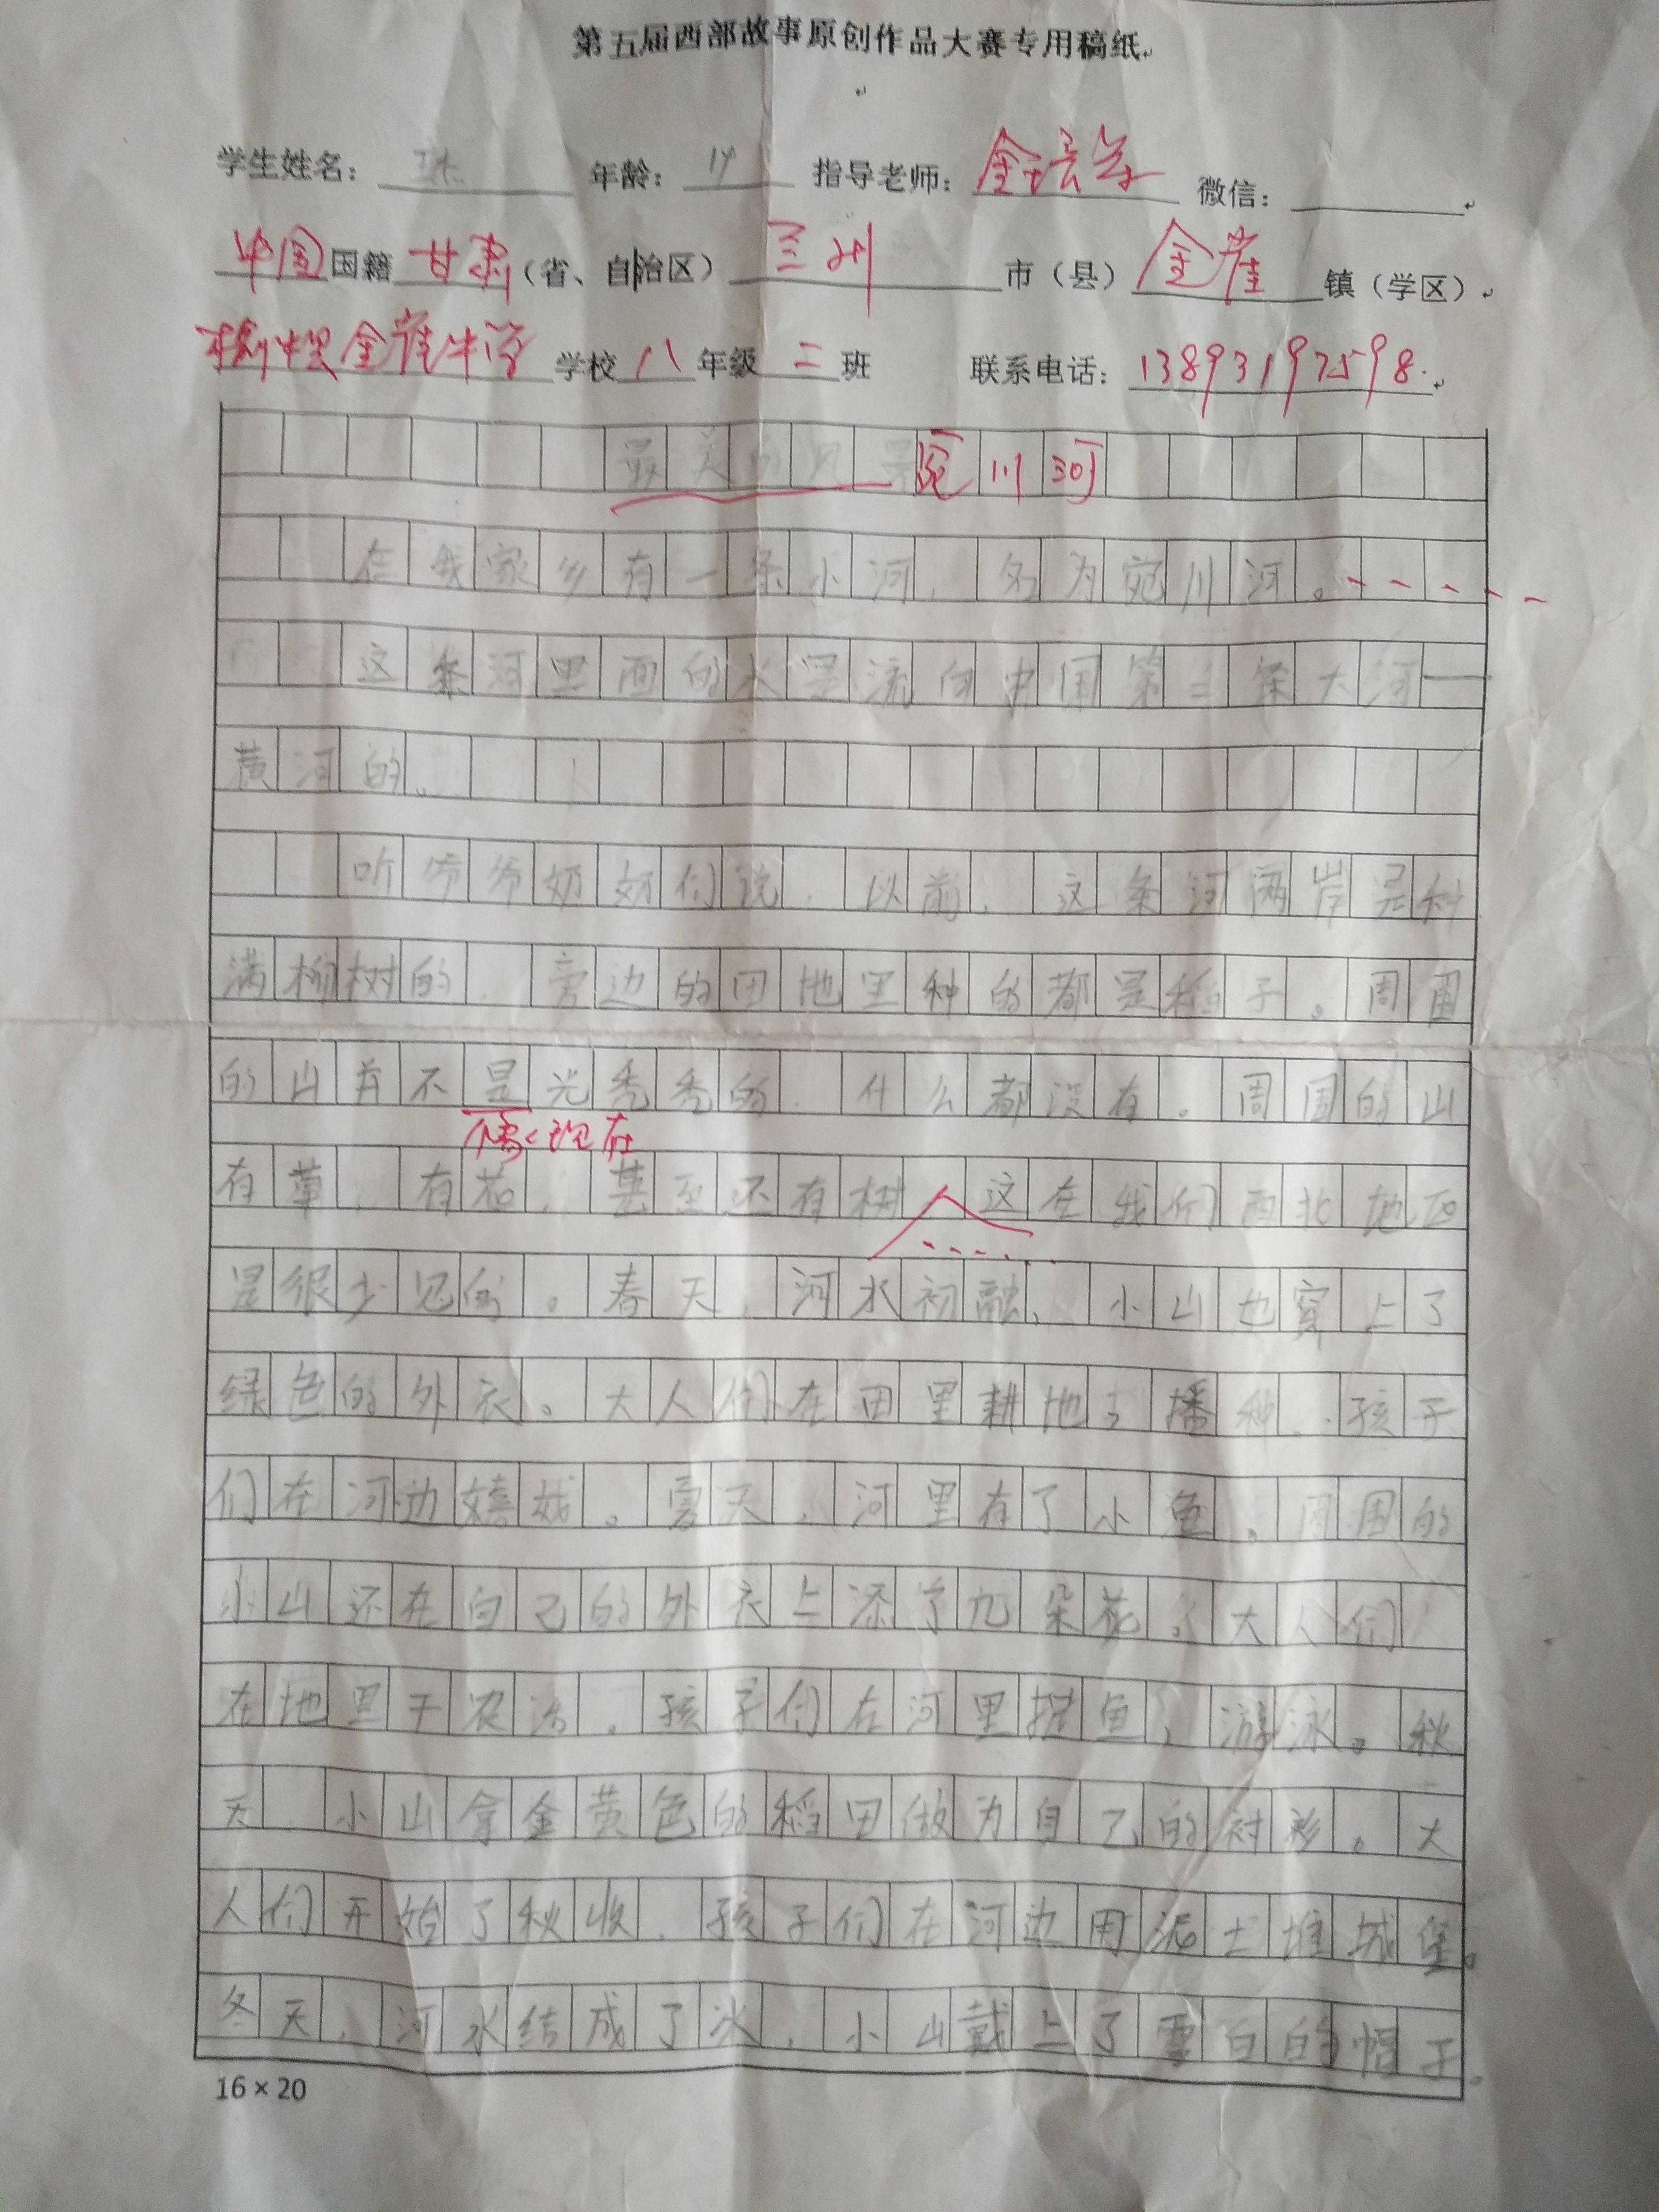 第五届西部故事原创作品大赛专用稿纸
学生姓名： 年龄：14 指导老师：金 微信：
中国国籍甘肃（省、自治区）兰州市（县）金崖镇（学区）
榆中县金崖中学学校八年级二班 联系电话：13893197598.
最美的风景宛川河
在我家乡有一条小河，名为宛川河。
这条河里面的水是流向中国第二条大河—
黄河的。
听爷爷奶奶们说，以前，这条河两岸是种
满柳树的，旁边的田地里种的都是稻子。周围
的山并不是光秃秃的，什么都没有。周围的山
像现在
有草，有花，甚至还有树，这在我们西北地区
是很少见的。春天，河水初融，小山也穿上了
绿色的外衣。大人们在田里耕地、播种，孩子
们在河边嬉戏。夏天，河里有了小鱼。周围的
小山还在自己的外衣上添了几朵花。大人们
在地里干农活，孩子们在河里捉鱼，游泳。秋
天，小山拿金黄色的稻田做为自己的衬衫。大
人们开始了秋收，孩子们在河边用泥土堆城堡。
冬天，河水结成了冰，小山戴上了雪白的帽子。
16×20